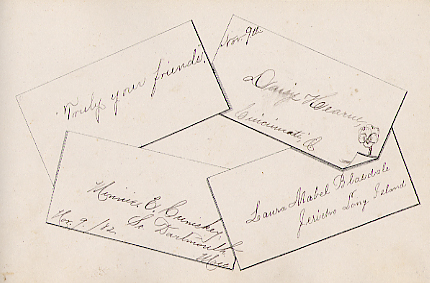 Truly your friends,
Nov. 9th
Daisy Kearne
Cincinnati O.
Minnie E.
So. Dartmouth
Nov. 9 /82 Mass
Laura Mabel Bleasdale
Jericho Long Island